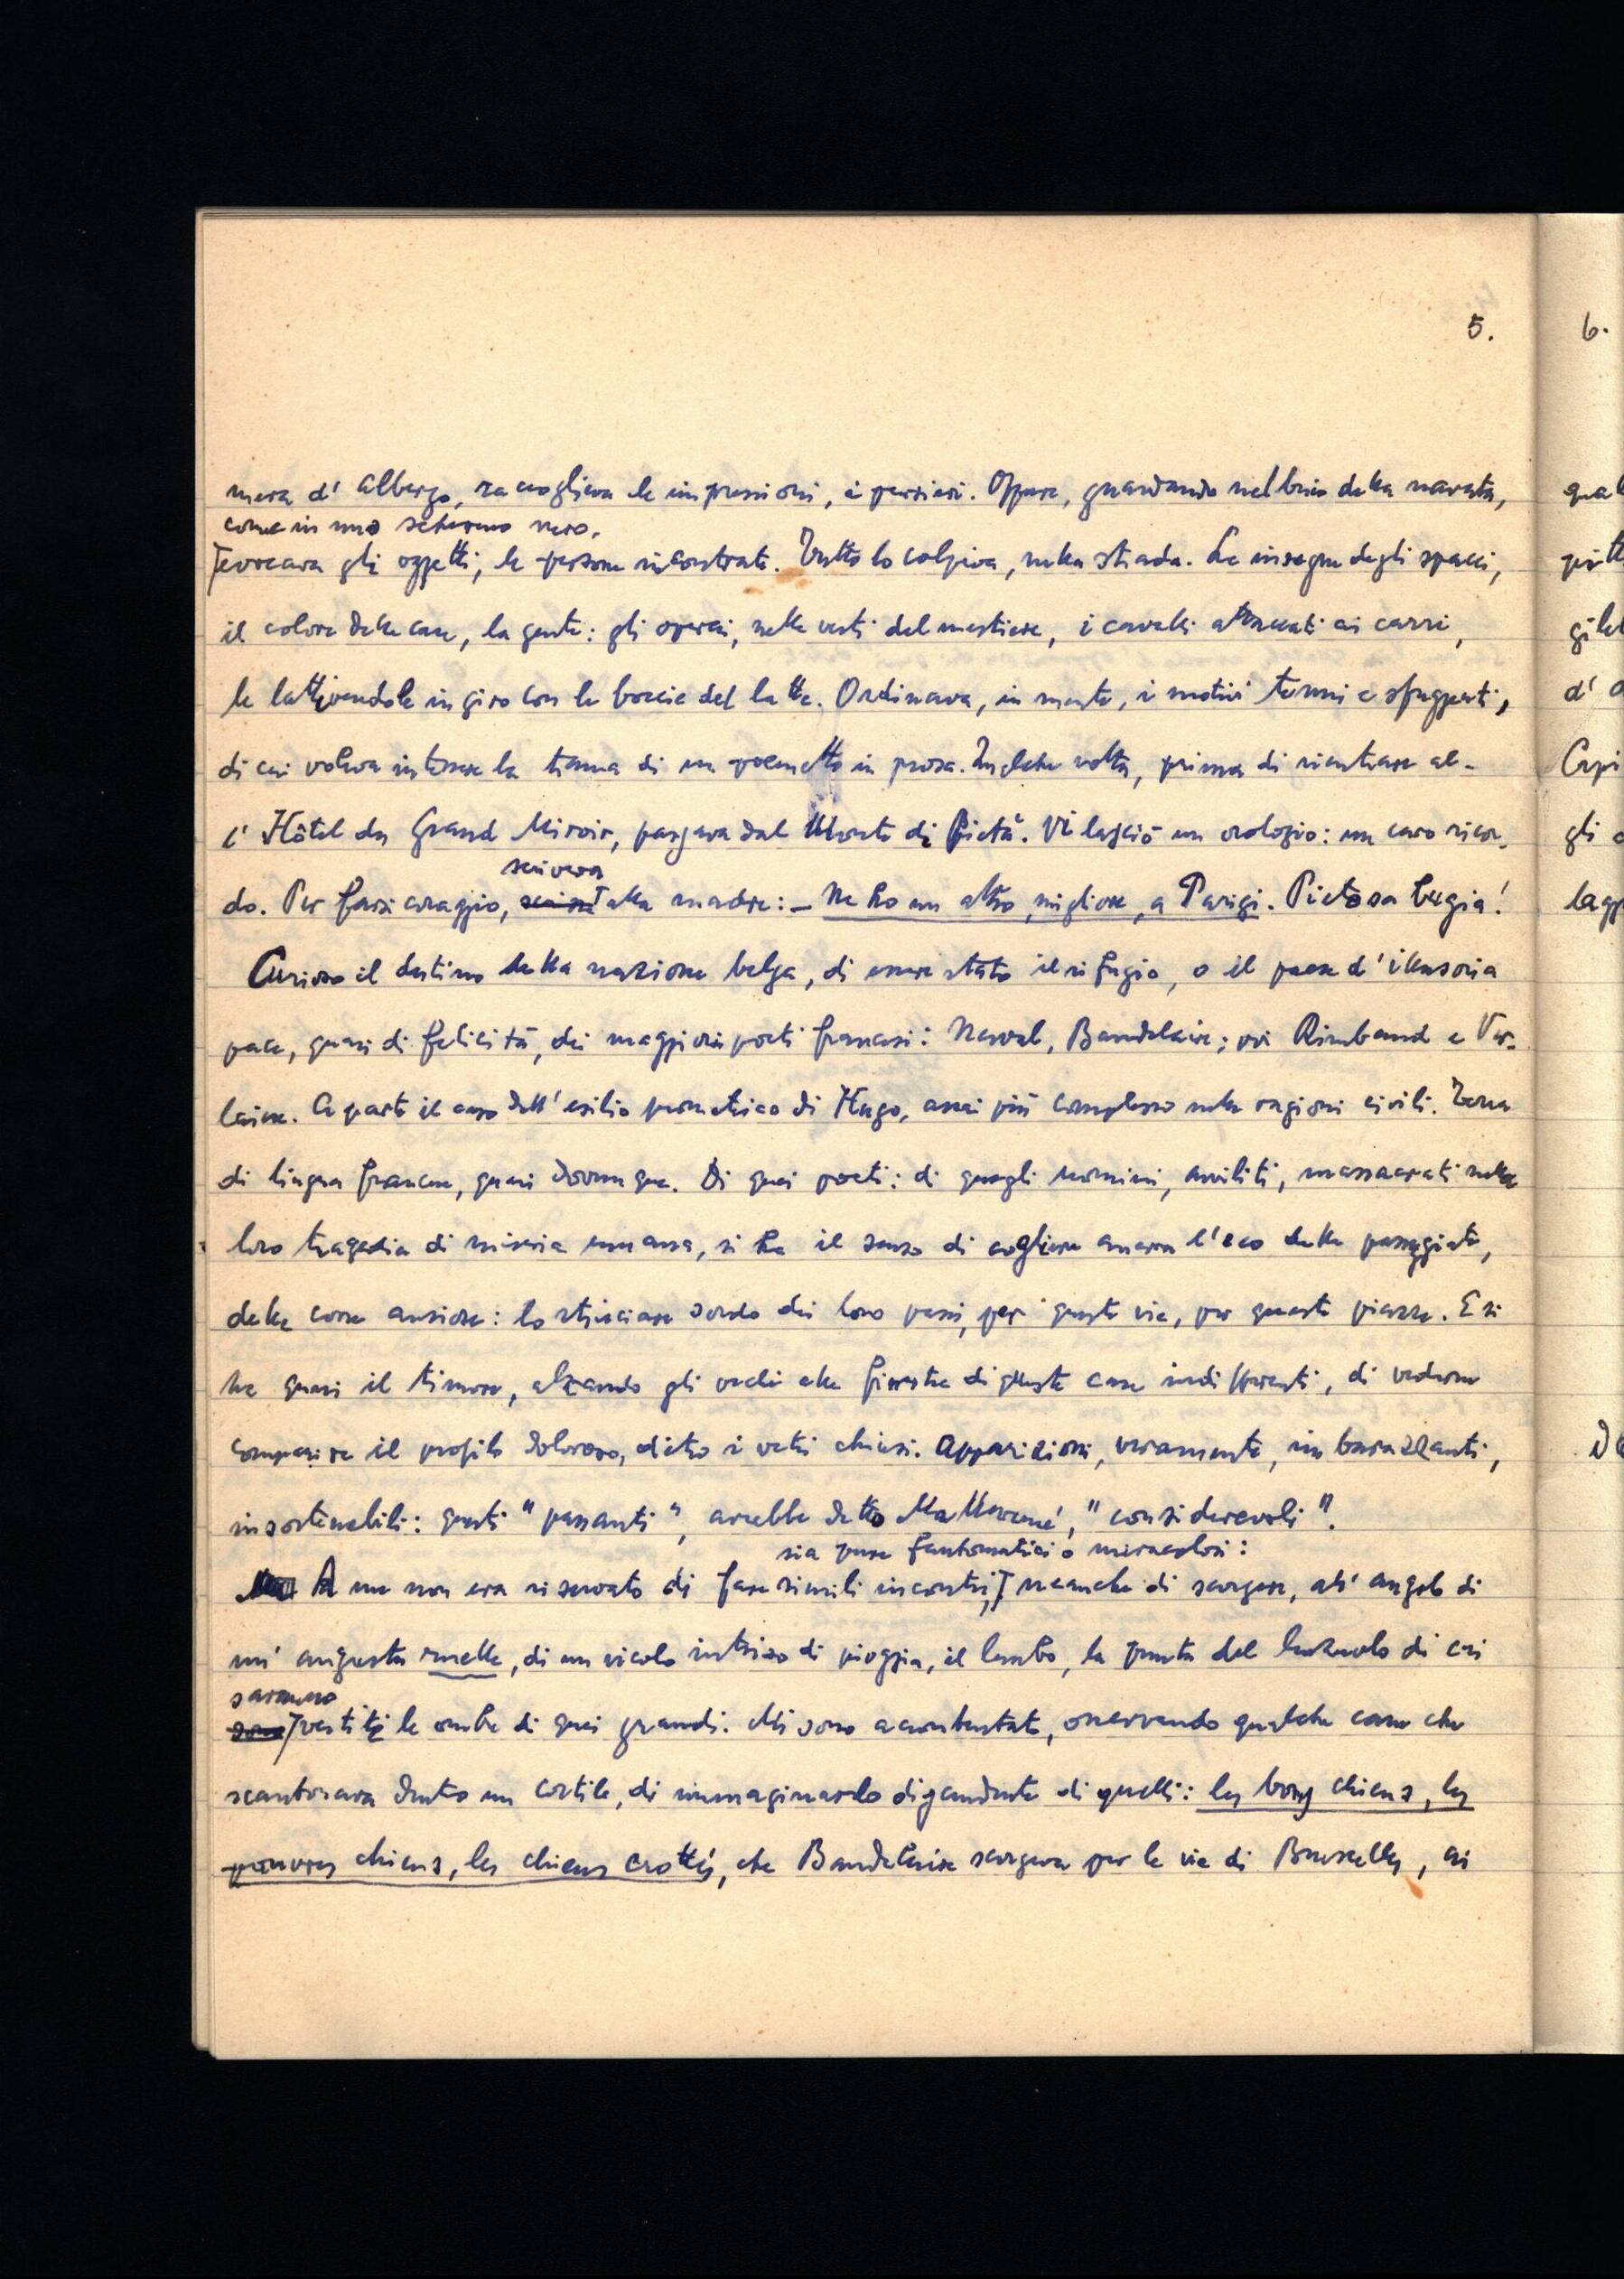 5.
mera d'albergo, raccoglieva le impressioni, i pensieri. Oppure, guardando nel buio della navata,
come in uno schermo nero,
evocava gli oggetti, le persone incontrate. Tutto lo colpiva, nella strada. Le insegne degli spacci,
il colore delle case, la gente: gli operai, nelle vesti del mestiere, i cavalli attaccati ai carri,
le lattivendole in giro con le boccie del latte. Ordinava, in mente, i motivi tenui e sfuggenti,
di cui voleva intessere la trama di un poemetto in prosa. Qualche volta, prima di rientrare al-
l'Hôtel du Grand Miroir, passava dal Monte di Pietà. Vi lasciò un orologio: un caro ricor-
scriveva
do. Per farsi coraggio, alla madre: - Ne ho un altro, migliore, a Parigi. Pietosa bugia!
Curioso il destino della nazione belga, di essere stato il rifugio, o il paese d'illusoria
pace, quasi di felicità, dei maggiori poeti francesi: Nerval, Baudelaire; poi Rimbaud e Ver-
laine. A parte il caso dell'esilio di Hugo, assai più complesso nelle ragioni civili. Terra
di lingua francese, quasi dovunque. Di quei poeti: di quegli uomini, avviliti, massacrati nella
loro tragedia di miseria umana, si ha il senso di cogliere ancora l'eco delle passeggiate,
delle corse ansiose: lo stusciare sordo dei loro passi, per queste vie, per queste piazze. E si
ha quasi il timore, alzando gli occhi alle finestre di queste case indifferenti, di vederne
comparire il profilo doloroso, dietro i vetri chiusi. Apparizioni, veramente, imbarazzanti,
insostenibili: questi "passanti", avrebbe detto Mallarmé, "considerevoli".
sia pure fantomatici o miracolosi:
A me non era riservato di fare simili incontri, neanche di scorgere, all'angolo di
un'angusta ruelle, di un vicolo intriso di pioggia, il lembo, la punta del lenzuolo di cui
saranno
sono vestite le ombre di quei grandi. Mi sono accontentato, osservando qualche cane che
scantonava dentro un cortile, di immaginarlo discendente di quelli: les bons chiens, les
pauvres chiens, les chiens crottés, che Baudelaire scorgeva per le vie di Bruxelles, ai
6.